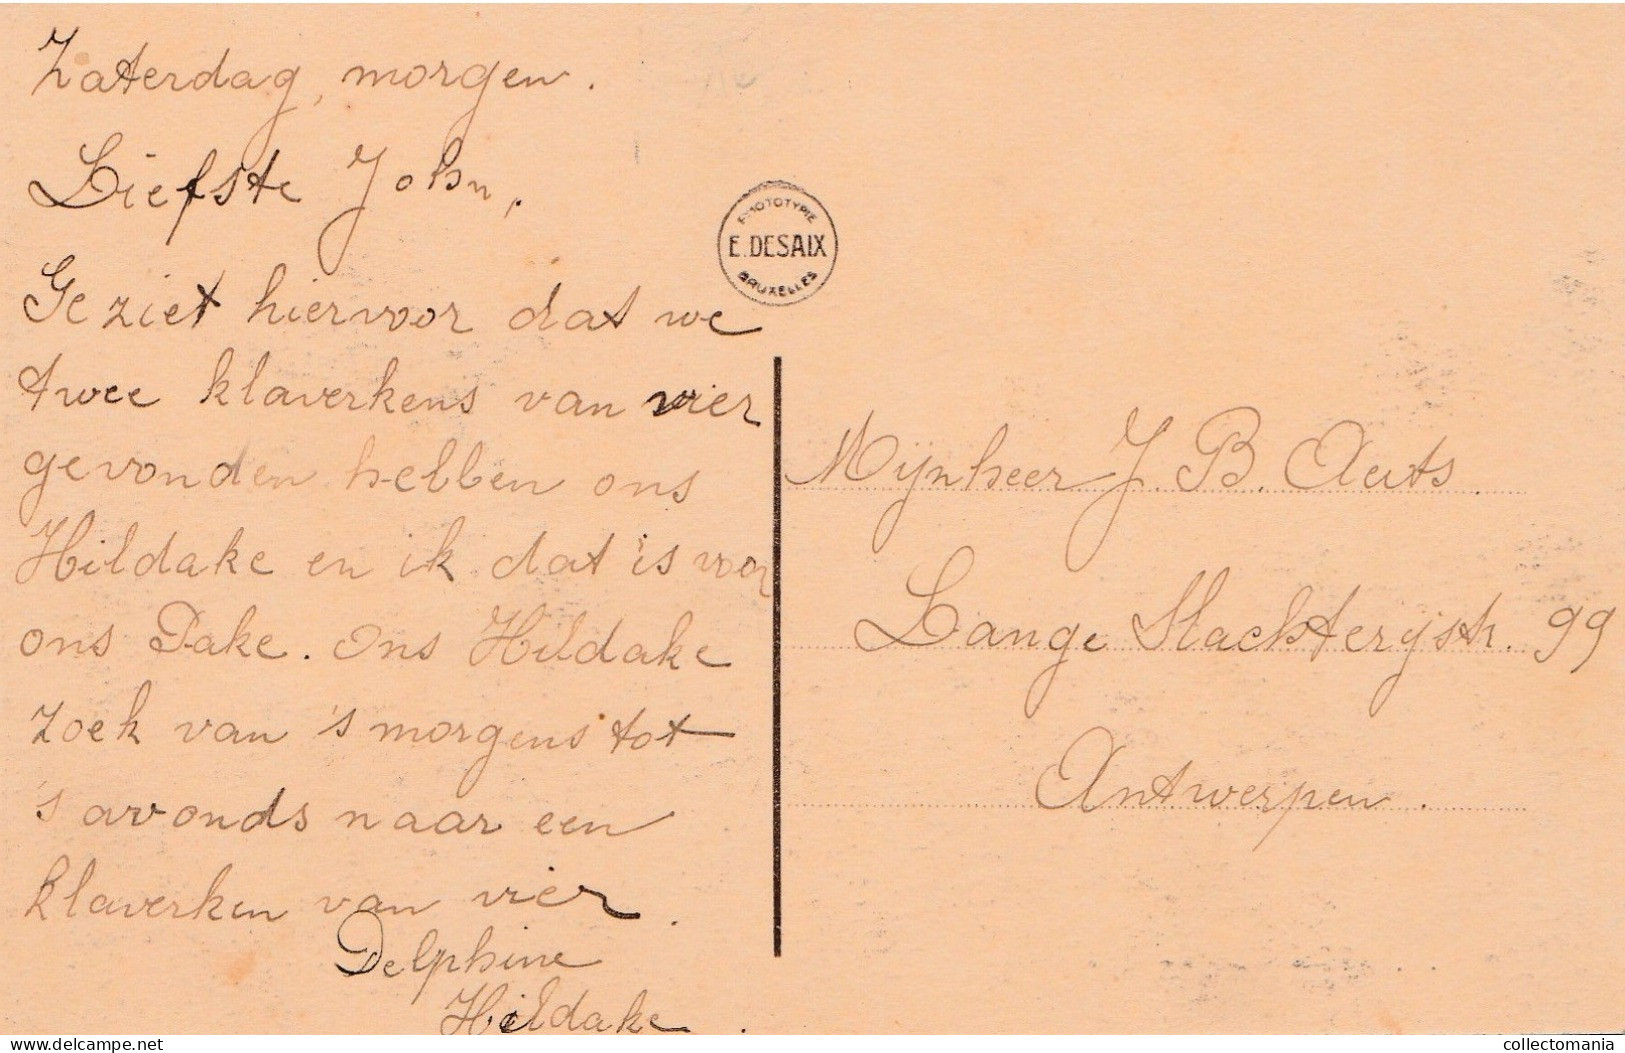 Zaterdag, morgen.
Liefste John,
Ge ziet hiervoor dat we
twee klaverkens van vier
gevonden hebben ons
Hildake en ik dat is voor
ons Pake. Ons Hildake
zoek van 's morgens tot
's avonds naar een
klaverken van vier.
Delphine
Hildake.
PHOTOTYPIE
E. DESAIX
BRUXELLES
Mijnheer J. B. Aerts.
Lange Slachterijstr. 99
Antwerpen.
www.delcampe.net
collectomania